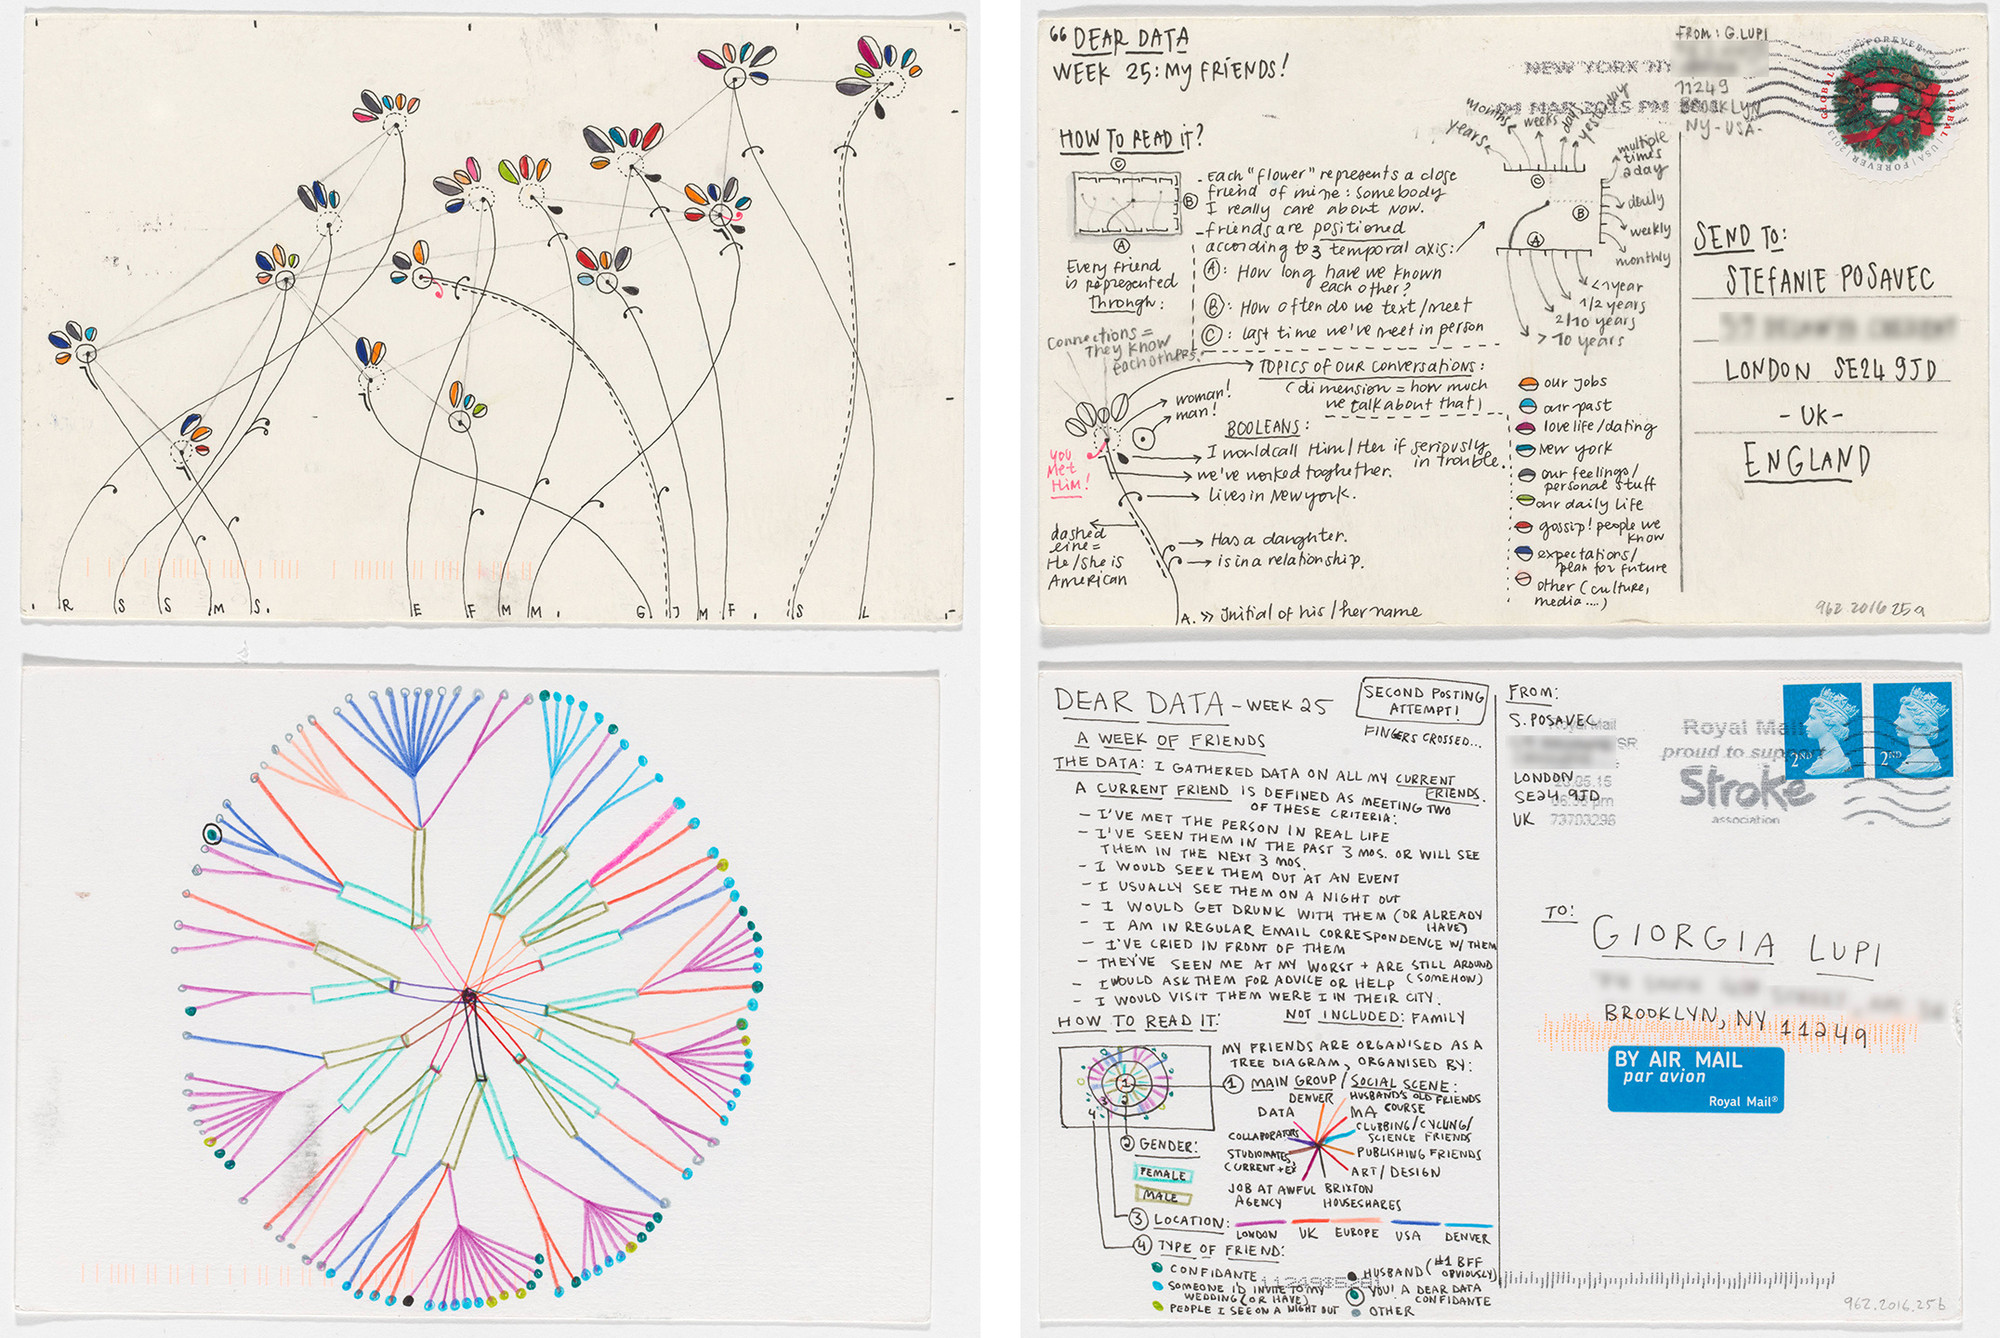 R S S M S. E F M M. G J M F. S L
“ DEAR DATA
WEEK 25: MY FRIENDS!
HOW TO READ IT?
C
B
A
Every friend
is represented
Through:
- Each "flower" represents a close
friend of mine: somebody
I really care about now.
- friends are positioned
according to 3 temporal axis:
A: How long have we known
each other?
B: How often do we text/meet
C: last time we've meet in person
years
months
weeks
days
yesterday
C
B
A
multiple
times
a day
daily
weekly
monthly
<1 year
1/2 years
2/10 years
> 10 years
connections =
They know
each others.
TOPICS OF OUR CONVERSATIONS:
(dimension = how much
we talk about that)
woman!
man!
BOOLEANS:
I would call Him/Her if seriously
in trouble.
we've worked toghether.
lives in New York.
YOU
MET
HIM!
dashed
line =
He/she is
American
Has a daughter.
is in a relationship.
A. >> initial of his/her name
our jobs
our past
love life/dating
New York
our feelings/
personal stuff
our daily life
gossip! people we
know
expectations/
plan for future
other (culture,
media ....)
FROM: G. LUPI
11249
BROOKLYN
NY-USA-
NEW YORK NY
04 MAR 2015 PM
FOREVER
GLOBAL
USA
SEND TO:
STEFANIE POSAVEC
LONDON SE24 9JD
- UK -
ENGLAND
962.2016.25a
DEAR DATA - WEEK 25
A WEEK OF FRIENDS
SECOND POSTING
ATTEMPT!
FINGERS CROSSED...
THE DATA: I GATHERED DATA ON ALL MY CURRENT
FRIENDS.
A CURRENT FRIEND IS DEFINED AS MEETING TWO
OF THESE CRITERIA:
- I'VE MET THE PERSON IN REAL LIFE
- I'VE SEEN THEM IN THE PAST 3 MOS. OR WILL SEE
THEM IN THE NEXT 3 MOS.
- I WOULD SEEK THEM OUT AT AN EVENT
- I USUALLY SEE THEM ON A NIGHT OUT
- I WOULD GET DRUNK WITH THEM (OR ALREADY
HAVE)
- I AM IN REGULAR EMAIL CORRESPONDENCE W/ THEM
- I'VE CRIED IN FRONT OF THEM
- THEY'VE SEEN ME AT MY WORST + ARE STILL AROUND
(SOMEHOW)
- I WOULD ASK THEM FOR ADVICE OR HELP
- I WOULD VISIT THEM WERE I IN THEIR CITY.
HOW TO READ IT:
NOT INCLUDED: FAMILY
MY FRIENDS ARE ORGANISED AS A
TREE DIAGRAM, ORGANISED BY:
1 2 3 4
1 MAIN GROUP / SOCIAL SCENE:
DENVER
HUSBAND'S OLD FRIENDS
DATA
MA COURSE
CLUBBING/CYCLING/
SCIENCE FRIENDS
COLLABORATORS
PUBLISHING FRIENDS
STUDIOMATES,
CURRENT + EX
ART/DESIGN
JOB AT AWFUL
AGENCY
BRIXTON
HOUSESHARES
2 GENDER:
FEMALE
MALE
3 LOCATION:
LONDON UK EUROPE USA DENVER
4 TYPE OF FRIEND:
CONFIDANTE
SOMEONE I'D INVITE TO MY
WEDDING (OR HAVE)
PEOPLE I SEE ON A NIGHT OUT
HUSBAND (#1 BFF
OBVIOUSLY)
YOU! A DEAR DATA
CONFIDANTE
OTHER
FROM:
S. POSAVEC
LONDON
SE24 9JD
UK
Royal Mail
05.15
pm
73703296
Royal Mail
proud to support
Stroke
association
2ND
2ND
TO:
GIORGIA LUPI
BROOKLYN, NY 11249
BY AIR MAIL
par avion
Royal Mail®
962.2016.25b